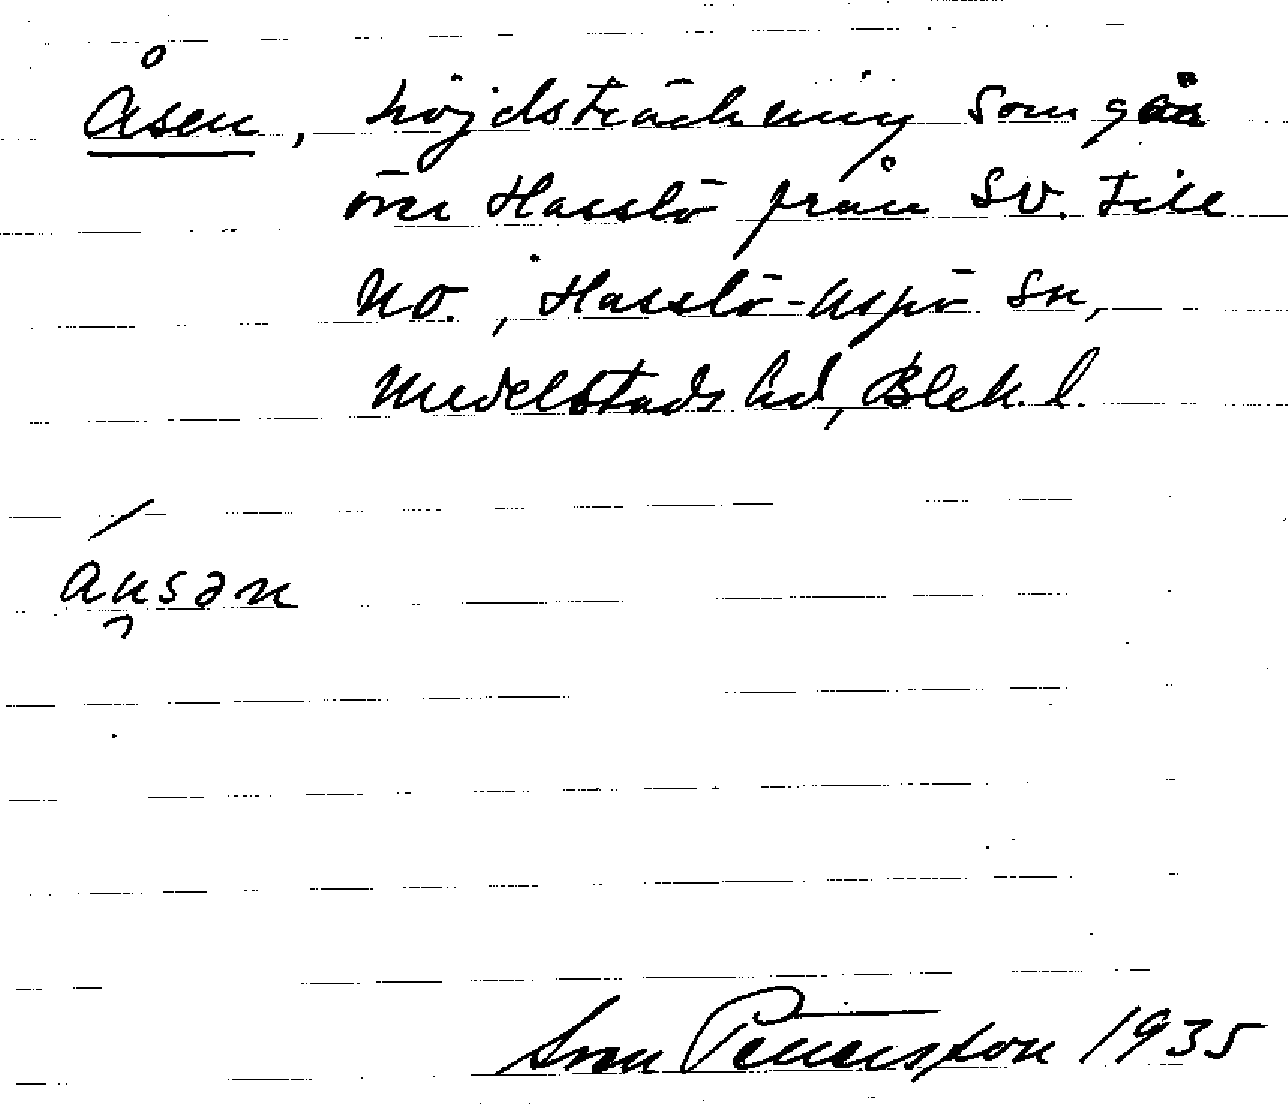 Åsen, höjdsträckning som går
över Hasslö från SV. till
NO., Hasslö-Aspö sn,
Medelstads hd, Blek. l.
ausən
Sven Petersson 1935